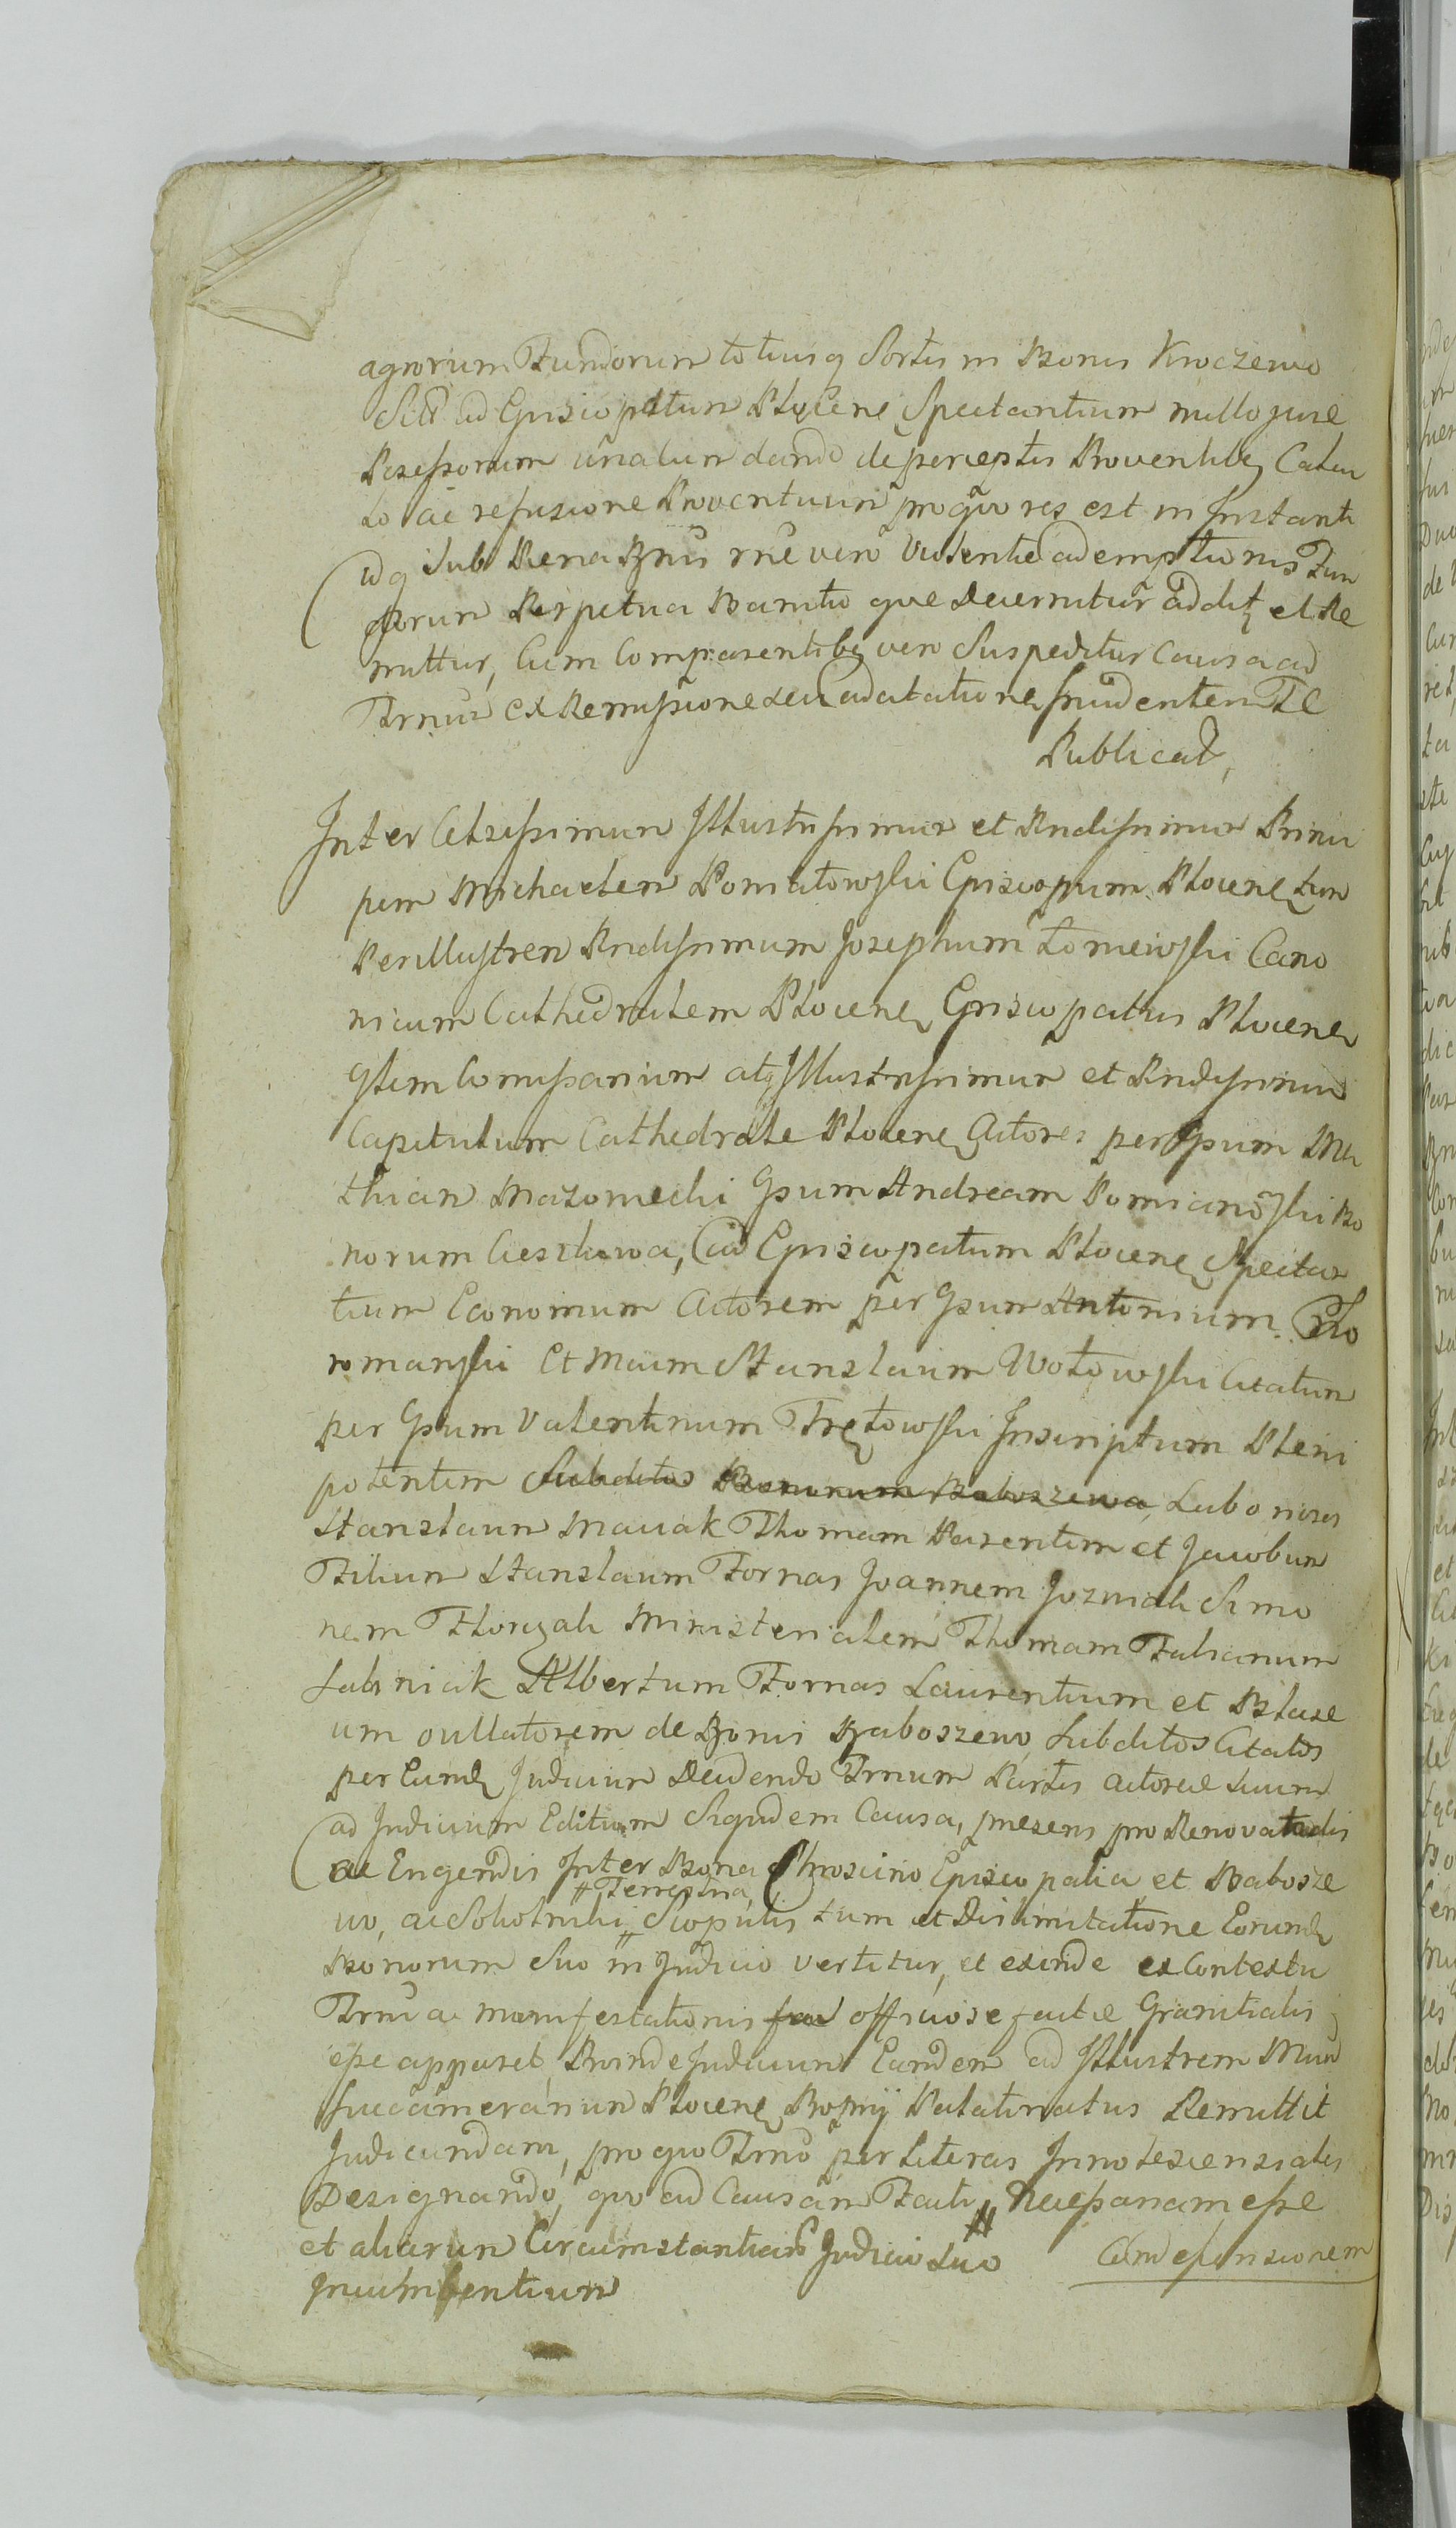 agrorum Fundorum totiusq Sortis in Bonis Kroczewo
Sitt ad Episcopatum Plocens Spectantium nullo jure
Possessorum unacum dando de perceptis Proventibq Calcu
lo ac refusione Proventuum pro quo res est in Instanti
idq sub Pena Bnis rne vero Violentae ademptionis Fun
dorum Perpetua Bannito que decernitur addit et Re
mittitur, Cum Comparentibq vero Suspeditur causa ad
Trnum ex Remissione seu adcitatione Incidentem TC
Publicat,
Inter Celsissimum Illustrissimum et Rndissimum Princi
pem Michaelem Poniatowski Episcopum Plocens tum
Perillustrem Rndissimum Josephum Łoniewski Cano
nicum Cathedralem Plocens Episcopatus Plocens
Gnlem Comissarium atq Illustrissimum et Rndissimum
Capitulum Cathedrale Plocens Actores per Gsum Ma
thiam Mazowiecki Gsum Andream Pomianowski Bo
norum Cieszkowa, ad Episcopatum Plocens Spectan
tium Economum Actorem per Gsum Antonium
romanski Et Mcum Stanislaum Wołowski Citatum
per Gsum Valentinum Trętowski Inscriptum Pleni
potentem Subditos Bonorum Baboszewa, Labonosos
Stanislaum Maciak Thomam Parentem et Jacobum
Filium Stanislaum Fornas Joannem Jozwiak Simo
nem Florczak Ministerialem Thomam Fabianum
Sabiniak Albertum Fornas Laurentium et Blase
um ovillatorem de Bonis Baboszewo Subditos Citatos
per Eund Judicium Decidendo Trnum Partis actoreae suum
ad Judicium Editum Siquidem Causa, presens pro Renovandis
ac Erigendis Inter Bona Chroscino Episcopalia et Babosze
wo, ac Sokolniki # Terrestria, Scopulis tum et Dislimitatione Eorund
Bonorum Suo in Judicio vertitur, et exinde ex Contextu
Trni ac manifestationis fac officiose factae Granitialis
esse apparet Proinde Judicium Eandem ad Illustrem Mund
Succamerarium Plocens Propry Palatinatus Remittit
Judicandam, pro quo Trno per Literas Innotescensiales
Designando, quo ad Causam Facti, # Necessariam esse
et aliarum Circumstantiarum Judicio Suo
Incumbentium
Condescensionem